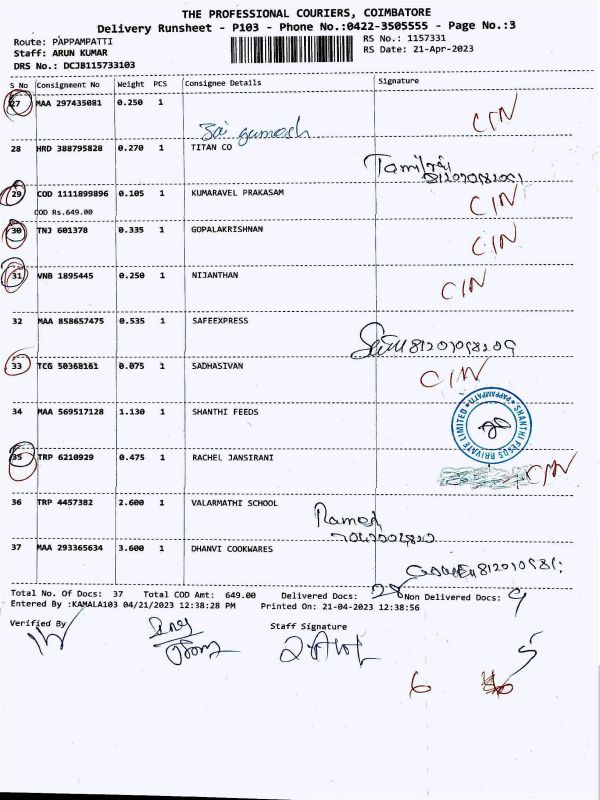 THE PROFESSIONAL COURIERS, COIMBATORE
Delivery Runsheet - P103 - Phone No.:0422-3505555 - Page No.:3
Route: PAPPAMPATTI
RS No.: 1157331
Staff: ARUN KUMAR
RS Date: 21-Apr-2023
DRS No.: DCJB115733103
S No Consignment No Weight PCS Consignee Details Signature
27 MAA 297435081 0.250 1 CIN
Sai
28 HRD 388795828 0.270 1 TITAN CO
29 COD 1111899896 0.105 1 KUMARAVEL PRAKASAM CIN
COD Rs.649.00
30 TNJ 601378 0.335 1 GOPALAKRISHNAN CIN
31 VNB 1895445 0.250 1 NIJANTHAN CIN
32 MAA 858657475 0.535 1 SAFEEXPRESS
33 TCG 50368161 0.075 1 SADHASIVAN CIN
34 MAA 569517128 1.130 1 SHANTHI FEEDS
SHANTHI FEEDS PRIVATE LIMITED * PAPPAMPATTI *
35 TRP 6210929 0.475 1 RACHEL JANSIRANI CIN
36 TRP 4457382 2.600 1 VALARMATHI SCHOOL
Ramesh
37 MAA 293365634 3.600 1 DHANVI COOKWARES
Total No. Of Docs: 37 Total COD Amt: 649.00 Delivered Docs: 28 Non Delivered Docs: 9
Entered By :KAMALA103 04/21/2023 12:38:28 PM Printed On: 21-04-2023 12:38:56
Verified By
Staff Signature
6